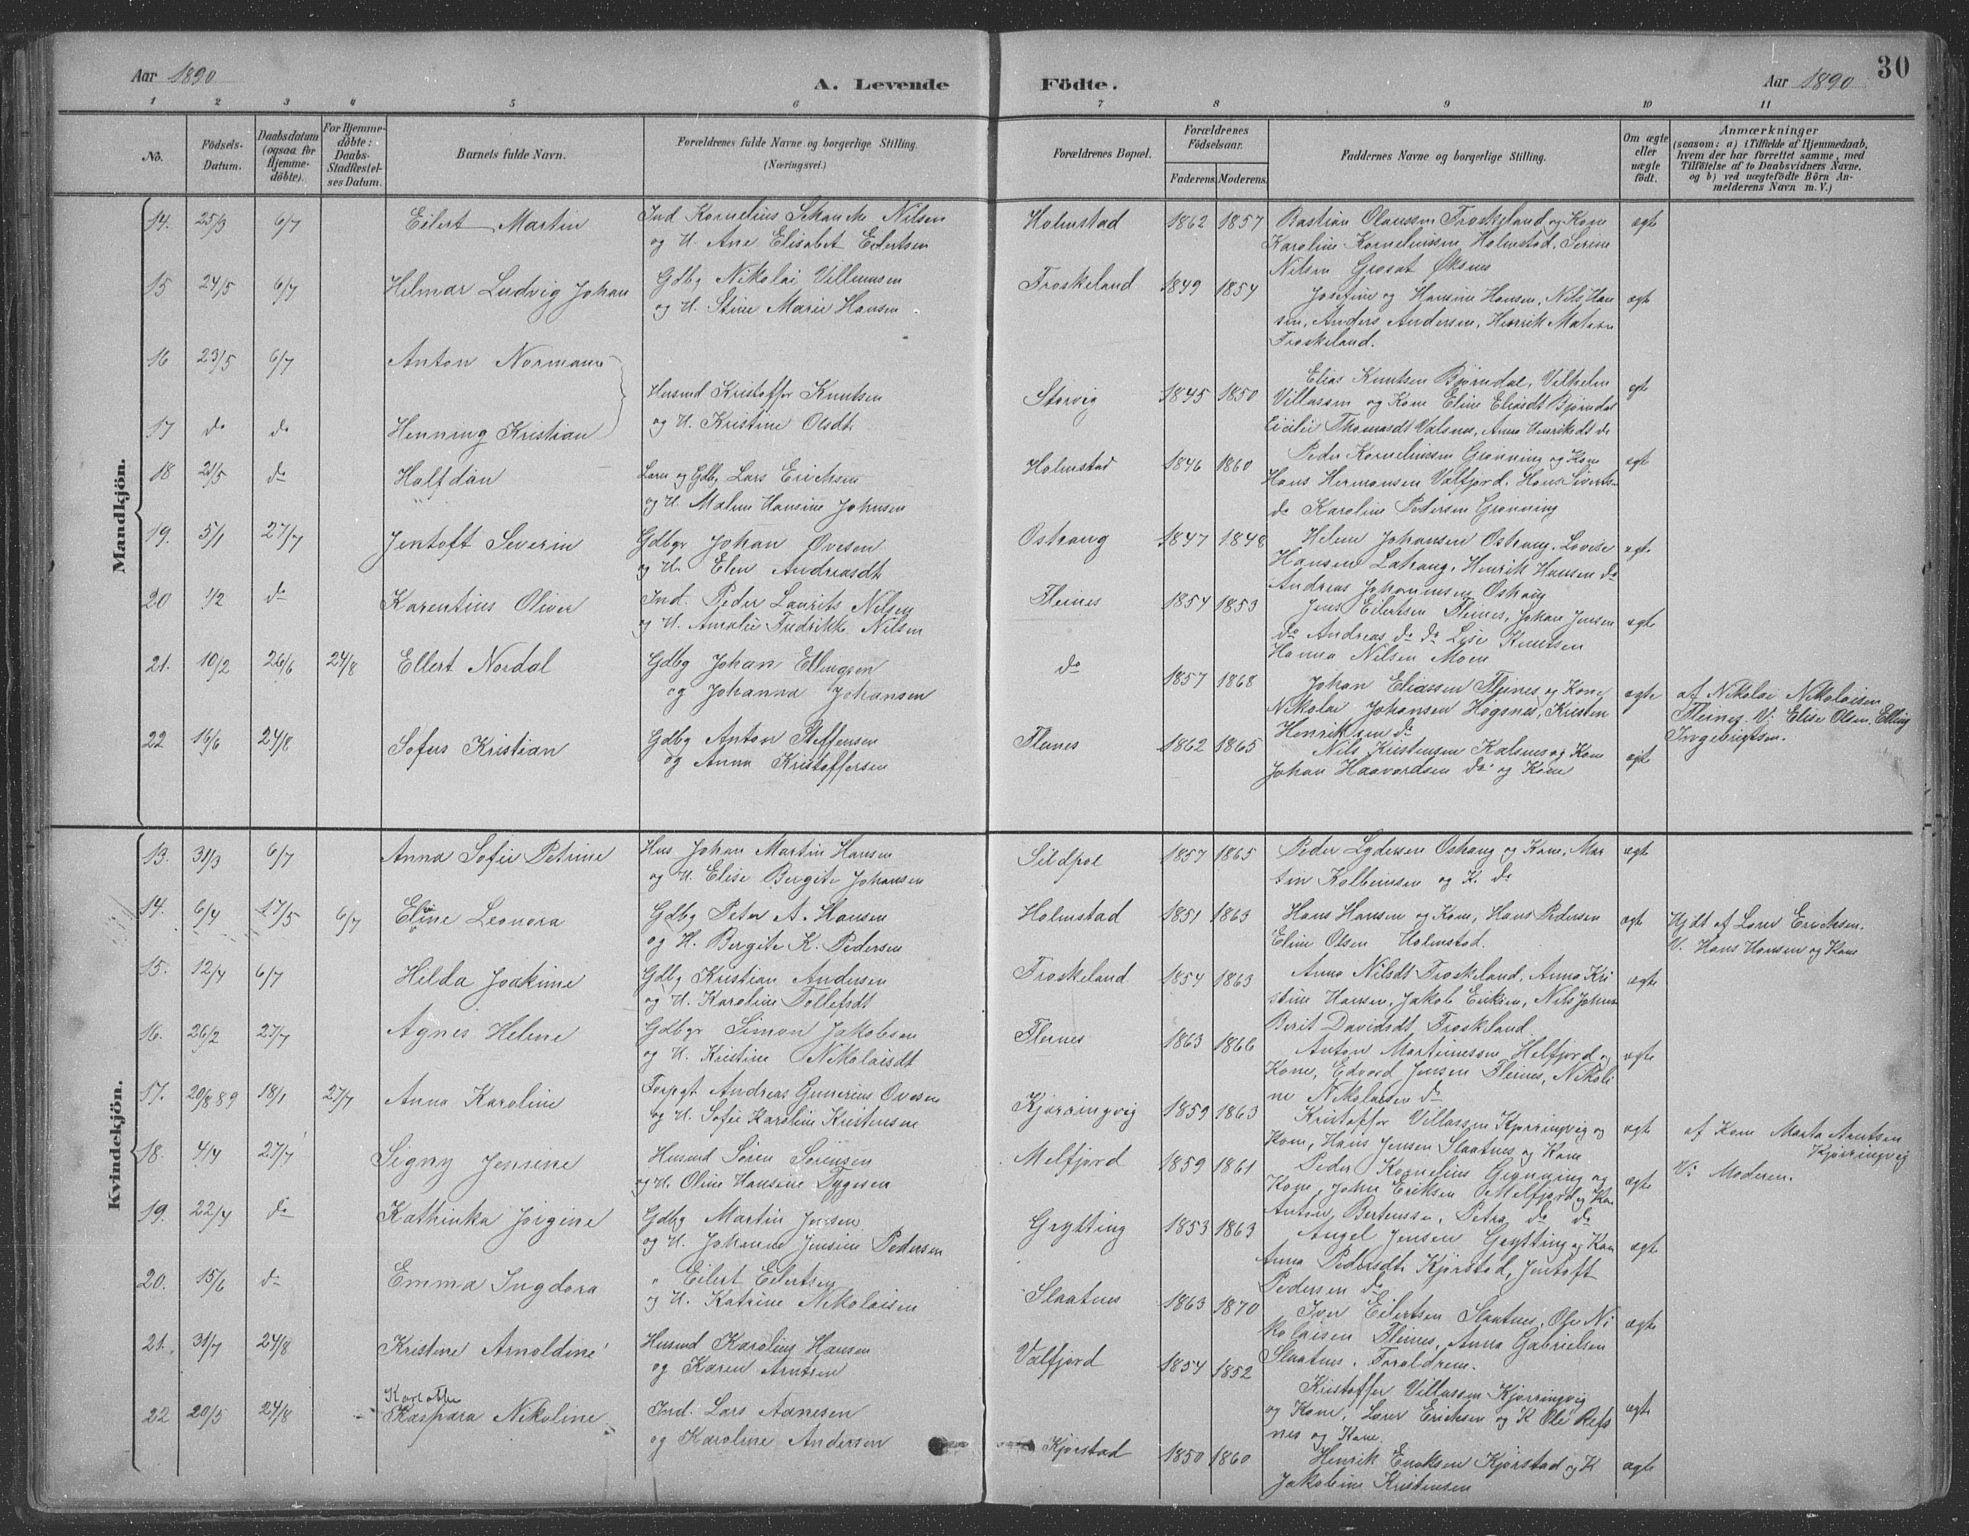 Aar 1890
A. Levende
Födte.
Aar 1890
30
1 2 3 4 5 6 7 8 9 10 11
No.
Födsels-Datum.
Daabsdatum (ogsaa for Hjemme-döbte).
For Hjemme-döbte: Daabs-Stadfæstel-ses Datum.
Barnets fulde Navn.
Forældrenes fulde Navne og borgerlige Stilling. (Næringsvei.)
Forældrenes Bopæl.
Forældrenes Födselsaar.
Faderens. Moderens.
Faddernes Navne og borgerlige Stilling.
Om ægte eller uægte födt.
Anmærkninger
(saasom: a) i Tilfælde af Hjemmedaab, hvem der har forrettet samme, med Tilföielse af to Daabsvidners Navne, og b) ved uægtefödte Börn An-melderens Navn m. V.)
Mandkjön.
14. 25/3 6/7 Eilert Martin Ind Kornelius Nilsen Holmstad 1862 1857 Bastian Olaussen Froskeland og Kone ægte
og H. Ane Elisabet Eilertsen Karoline Kornelinssen, Holmstad, Serine
Nilsen Øksnes
15 24/5 6/7 Hilmar Ludvig Johan Gdbg Nikolai Villumsen Froskeland 1849 1854 Josefine og Hansine Hansen, Nils Han ægte
og H. Stine Marie Hansen sen, Anders Andersen, Henrik
Froskeland.
16 23/5 6/7 Anton Normann
Husmd Kristoffer Knutsen Storvig 1845 1850 Elias Knutsen Bjørndal, Vilhelm ægte
Villassen og Kone Eline Eliasdt Bjørndal
17 do do Henning Kristian og H. Kristine Olsdt
Thomasdt Valsnes, Anna Henriksdt do
18 21/5 do Halfdan Lærer og Gdbg Lars Erichsen Holmstad 1846 1860 Peder Kornelinssen Grønning og Kone ægte
og H. Malene Hansine Johnsen Hans Hermansen Valfjord, Hans
do Karoline Pedersen Grønning
19. 5/1 27/7 Jentoft Severin Gdbgr Johan Ovesen Oshaug 1847 1848 Helene Johansen Oshaug, Lovise ægte
og H. Elen Andreasdt Hansen Lahaug, Henrik Hansen do
Andreas Johannesen Oshaug
20 1/2 do Karentius Oliver Ind. Peder Laurits Nilsen Fleines 1854 1853 Jens Eilertsen Fleines, Johan Jensen ægte
og H. Amalie Fredrikke Nilsen do Andreas do do Lise Knutsen
Hanna Nilsen Moen
21. 10/2 26/6 24/8 Ellert Nordal Gdbg Johan Ellingsen do 1857 1868 Johan Eliassen Fleines og Kone ægte af Nikolai Nikolaisen
og Johanna Johansen Nikolai Johansen Høgsnes, Kristen Fleines. V: Elise Olsen, Elling
Henriksen do Ingebrigtsen.
22 16/6 24/8 Sofus Kristian Gdbg Anton Steffensen Fleines 1862 1865 Nils Kristensen Kalsnes og Kone ægte
og Anna Kristoffersen Johan Haavardsen do og Kone
Kvindekjön.
13. 31/3 6/7 Anna Sofie Petrine Hus Johan Martin Hansen Sildpol 1857 1865 Peder Lydersen Oshaug og Kone, Mar ægte
og H. Elise Bergite Johansen tin Kolbeinsen og K. do
14. 6/4 17/5 6/7 Eline Leonora Gdbg Peter A. Hansen Holmstad 1851 1863 Hans Hansen og Kone, Hans Pedersen ægte Hjdt af Lærer Erichsen.
og H. Bergite K. Pedersen Eline Olsen Holmstad. V. Hans Hansen og Kone
15. 12/4 6/7 Helda Joakime Gdbg Kristian Andersen Froskeland 1854 1863 Anna Nilsdt Froskeland, Anna Kri ægte
og H. Karoline Tollefsdt stine Hansen, Jakob Eriksen, Nils Johns
Berit Davidsdt Froskeland
16. 26/2 27/7 Agnes Helene Gdbgr Simon Jakobsen Fleines 1863 1866 Anton Martinussen Helfjord og ægte
og H. Kristine Nikolaisdt Kone, Edvard Jensen Fleines, Nikoli
ne Nikolaisen do
17. 20/8 89 18/1 27/7 Anna Karoline Forpgt Andreas Gunerius Ovesen Kjørringvig 1859 1863 Kristoffer Villassen Kjørringvig og ægte af Kone Marta Arntsen
og H. Sofie Karoline Kristensen Kone, Hans Jensen Slaatnes og Kone Kjørringvig
18. 4/4 27/7 Signy Jensine Husmd Sören Sörensen Melfjord 1859 1861 Peder Kornelius Grønning og ægte V: Moderen.
og H. Oline Hansine Tygesen Kone, John Eriksen Melfjord og Kon
Anton Berntsen, Petra do do
19. 22/4 do Kathinka Jørgine Gdbg Martin Jensen Grytting 1853 1863 Angel Jensen Grytting og Kon ægte
og H. Johanne Jensine Pedersen Anna Pedersdt Kjørstad, Jentoft
Pedersen do
20. 15/6 do Emma Ingdora " Eilert Eilertsen Slaatnes 1863 1870 Iver Eilertsen Slaatnes, Ole Ni ægte
og H. Katrine Nikolaisen kolaisen Fleines, Anna Gabrielsen
Slaatnes. Forældrene.
21. 31/7 24/8 Kristine Arnoldine Husmd Karolius Hansen Valfjord 1854 1852 Kristoffer Villassen Kjørringvig ægte
og Karen Arntsen og Kone, Lærer Erichsen og K Ole Refs
nes og Kone.
22 20/5 24/8 Kaspara Nikoline Ind. Lars Aanesen Kjørstad 1850 1860 Henrik Eriksen Kjørstad og K ægte
og Karoline Andersen Jakobine Kristensen